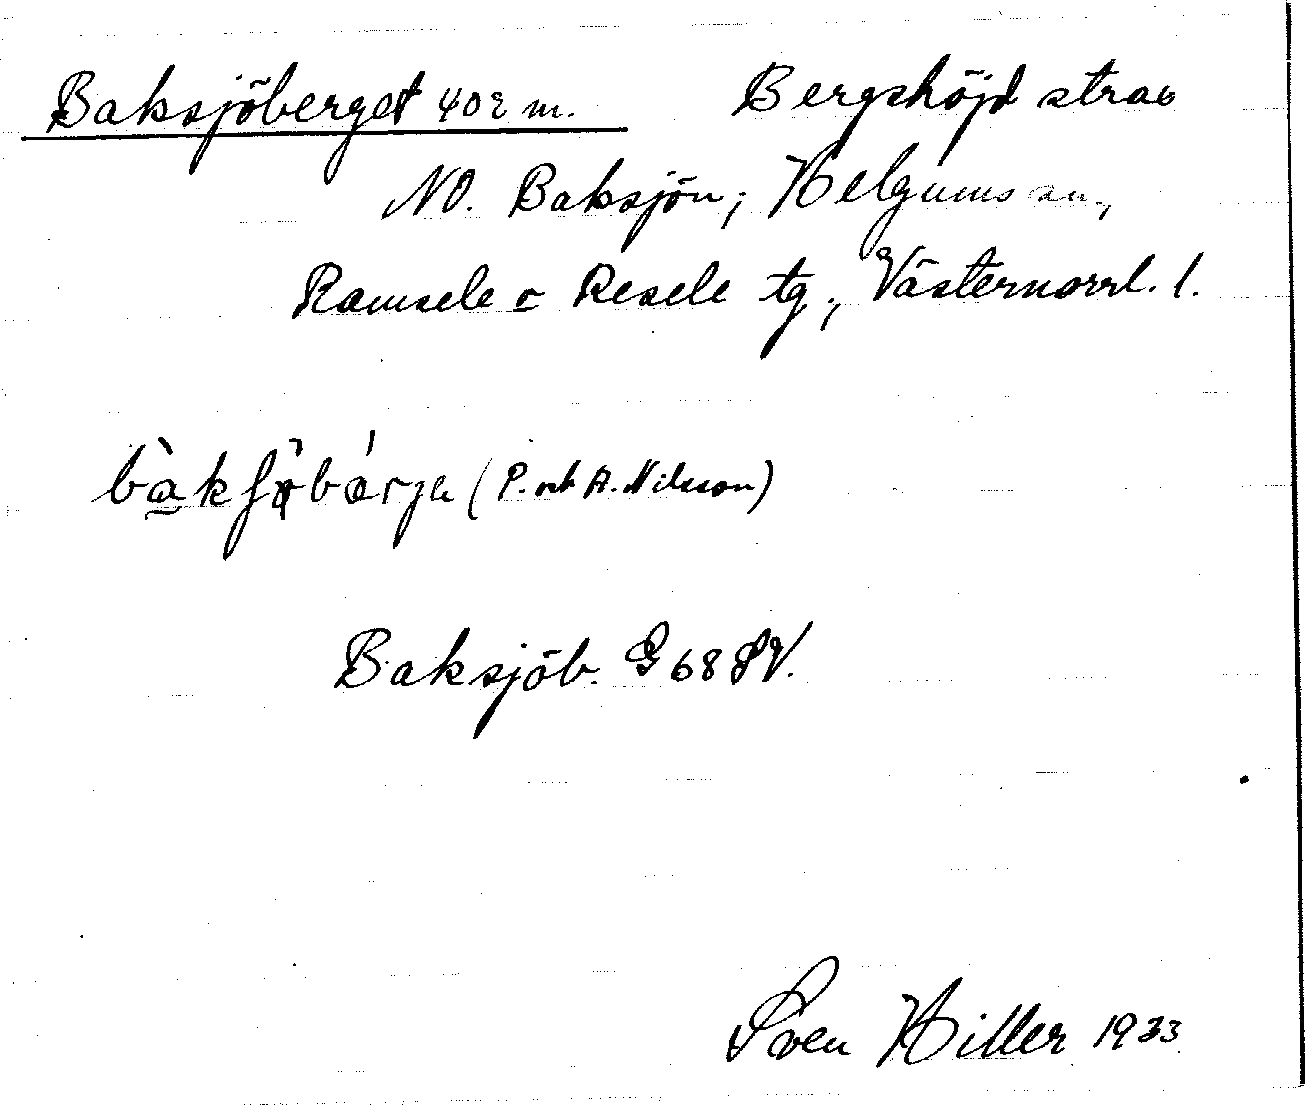 Baksjöberget 402 m. Bergshöjd strax
NO. Baksjön, Helgums sn.,
Ramsele o Resele tg., Västernorrl. l.
(P. och A. Nilsson)
Baksjöb. G 68 SV.
Sven Hiller 1933